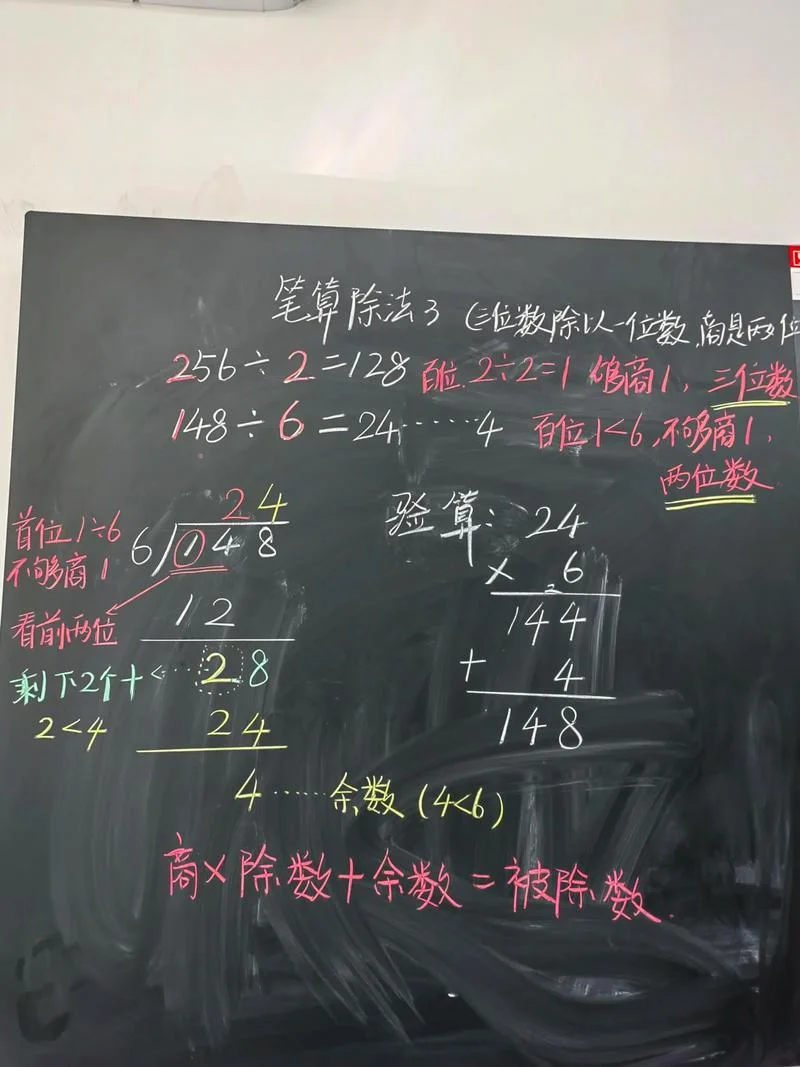 笔算除法3 (三位数除以一位数,商是两位
256÷2=128 百位.2÷2=1 够商1, 三位数
148÷6=24······4 百位1<6,不够商1,
两位数
首位1÷6
不够商1
看前两位
剩下2个十
2<4
24
6)148
12
28
24
4······余数(4<6)
验算: 24
× 6
2
144
+ 4
148
商×除数+余数=被除数.